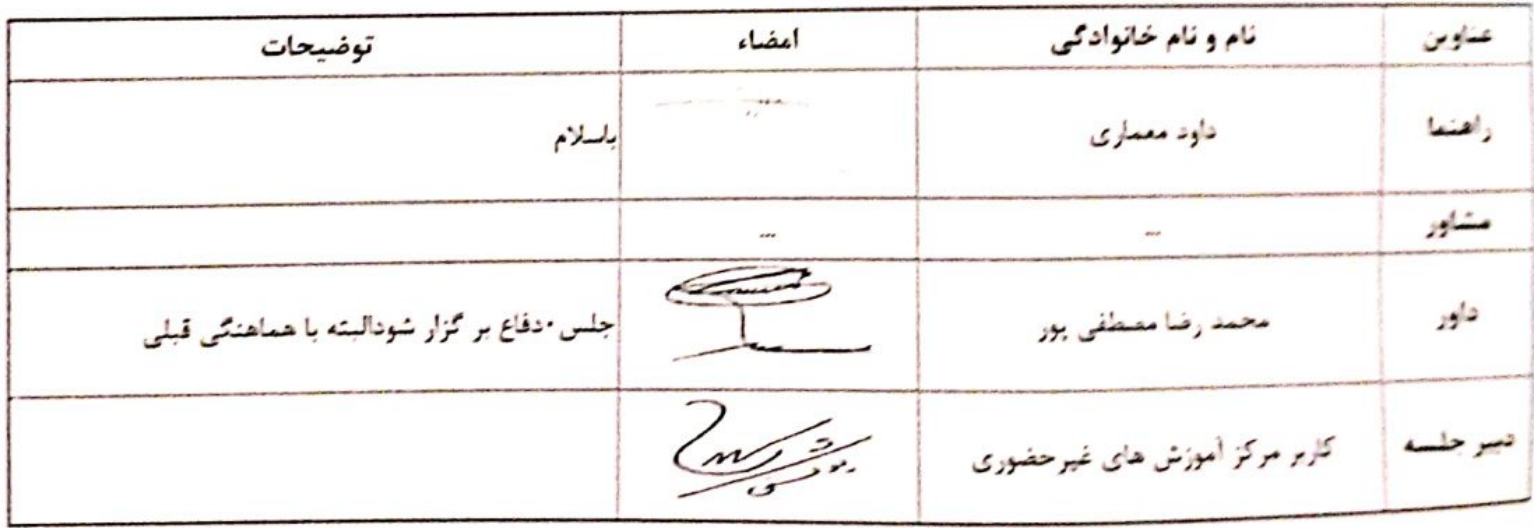 عناوین نام و نام خانوادگی امضاء توضیحات
راهنما داود معماری باسلام
مشاور ... ...
داور محمد رضا مصطفی پور جلس •دفاع بر گزار شودالبته با هماهنگی قبلی
دبیر جلسه کاربر مرکز آموزش های غیرحضوری